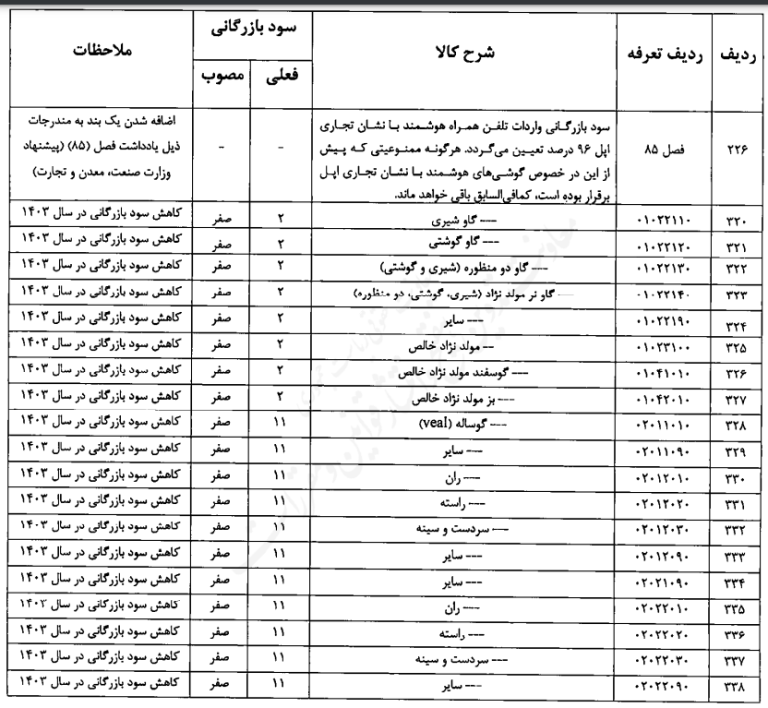 ردیف ردیف تعرفه شرح کالا سود بازرگانی ملاحظات
فعلی مصوب
۲۲۶ فصل ۸۵ سود بازرگانی واردات تلفن همراه هوشمند با نشان تجاری - - اضافه شدن یک بند به مندرجات
اپل ۹۶ درصد تعیین می‌گردد. هرگونه ممنوعیتی که پیش ذیل یادداشت فصل (۸۵) (پیشنهاد
از این در خصوص گوشی‌های هوشمند با نشان تجاری اپل وزارت صنعت، معدن و تجارت)
برقرار بوده است، کمافی‌السابق باقی خواهد ماند.
۳۲۰ ۰۱۰۲۲۱۱۰ --- گاو شیری ۲ صفر کاهش سود بازرگانی در سال ۱۴۰۳
۳۲۱ ۰۱۰۲۲۱۲۰ --- گاو گوشتی ۲ صفر کاهش سود بازرگانی در سال ۱۴۰۳
۳۲۲ ۰۱۰۲۲۱۳۰ --- گاو دو منظوره (شیری و گوشتی) ۲ صفر کاهش سود بازرگانی در سال ۱۴۰۳
۳۲۳ ۰۱۰۲۲۱۴۰ --- گاو نر مولد نژاد (شیری، گوشتی، دو منظوره) ۲ صفر کاهش سود بازرگانی در سال ۱۴۰۳
۳۲۴ ۰۱۰۲۲۱۹۰ --- سایر ۲ صفر کاهش سود بازرگانی در سال ۱۴۰۳
۳۲۵ ۰۱۰۲۳۱۰۰ -- مولد نژاد خالص ۲ صفر کاهش سود بازرگانی در سال ۱۴۰۳
۳۲۶ ۰۱۰۴۱۰۱۰ --- گوسفند مولد نژاد خالص ۲ صفر کاهش سود بازرگانی در سال ۱۴۰۳
۳۲۷ ۰۱۰۴۲۰۱۰ --- بز مولد نژاد خالص ۲ صفر کاهش سود بازرگانی در سال ۱۴۰۳
۳۲۸ ۰۲۰۱۱۰۱۰ --- گوساله (veal) ۱۱ صفر کاهش سود بازرگانی در سال ۱۴۰۳
۳۲۹ ۰۲۰۱۱۰۹۰ --- سایر ۱۱ صفر کاهش سود بازرگانی در سال ۱۴۰۳
۳۳۰ ۰۲۰۱۲۰۱۰ --- ران ۱۱ صفر کاهش سود بازرگانی در سال ۱۴۰۳
۳۳۱ ۰۲۰۱۲۰۲۰ --- راسته ۱۱ صفر کاهش سود بازرگانی در سال ۱۴۰۳
۳۳۲ ۰۲۰۱۲۰۳۰ --- سردست و سینه ۱۱ صفر کاهش سود بازرگانی در سال ۱۴۰۳
۳۳۳ ۰۲۰۱۲۰۹۰ --- سایر ۱۱ صفر کاهش سود بازرگانی در سال ۱۴۰۳
۳۳۴ ۰۲۰۲۱۰۹۰ --- سایر ۱۱ صفر کاهش سود بازرگانی در سال ۱۴۰۳
۳۳۵ ۰۲۰۲۲۰۱۰ --- ران ۱۱ صفر کاهش سود بازرگانی در سال ۱۴۰۳
۳۳۶ ۰۲۰۲۲۰۲۰ --- راسته ۱۱ صفر کاهش سود بازرگانی در سال ۱۴۰۳
۳۳۷ ۰۲۰۲۲۰۳۰ --- سردست و سینه ۱۱ صفر کاهش سود بازرگانی در سال ۱۴۰۳
۳۳۸ ۰۲۰۲۲۰۹۰ --- سایر ۱۱ صفر کاهش سود بازرگانی در سال ۱۴۰۳